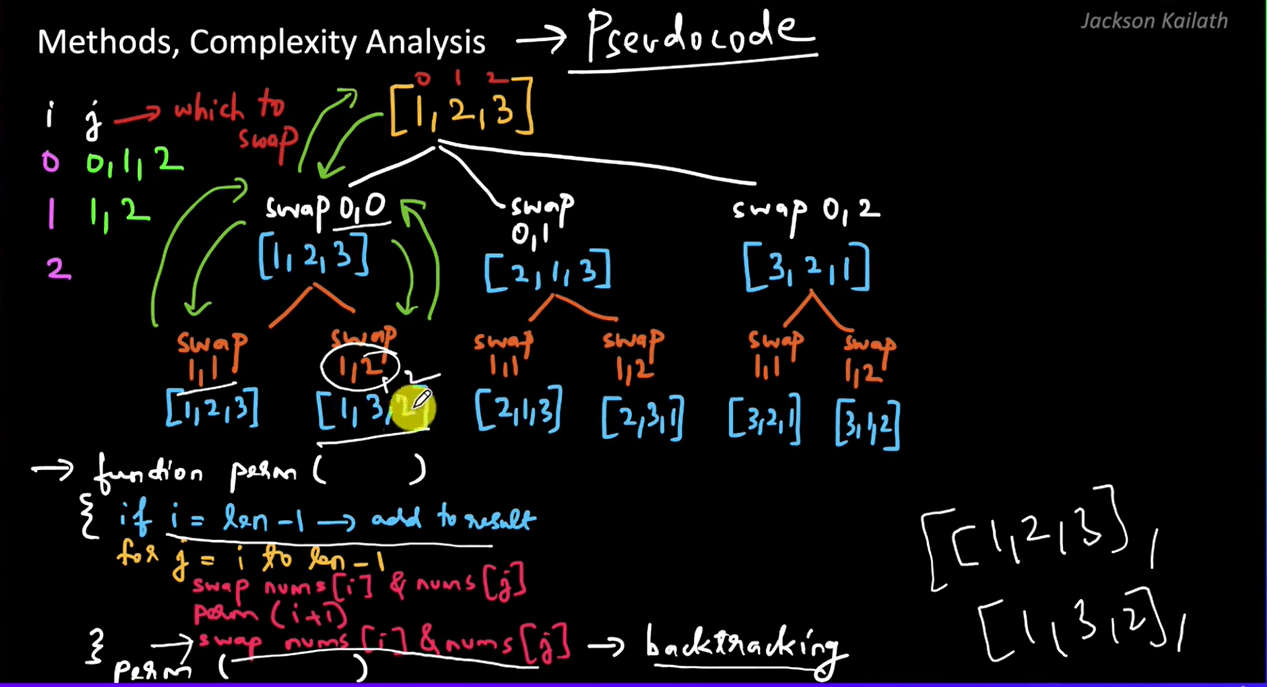 Jackson Kailath
Methods, Complexity Analysis → Pseudocode
0 1 2
[1, 2, 3]
i j → which to swap
0 0, 1, 2
1 1, 2
2
swap 0,0
[1, 2, 3]
swap
0,1
[2, 1, 3]
swap 0,2
[3, 2, 1]
swap
1,1
[1, 2, 3]
swap
1,2
[1, 3, 2]
swap
1,1
[2,1,3]
swap
1,2
[2,3,1]
swap
1,1
[3,2,1]
swap
1,2
[3,1,2]
→ function perm ( )
{ if i = len -1 → add to result
for j = i to len -1
swap nums [i] & nums [j]
perm (i+1)
→ swap nums [i] & nums [j] → backtracking
}
perm ( )
[[1,2,3],
[1,3,2],